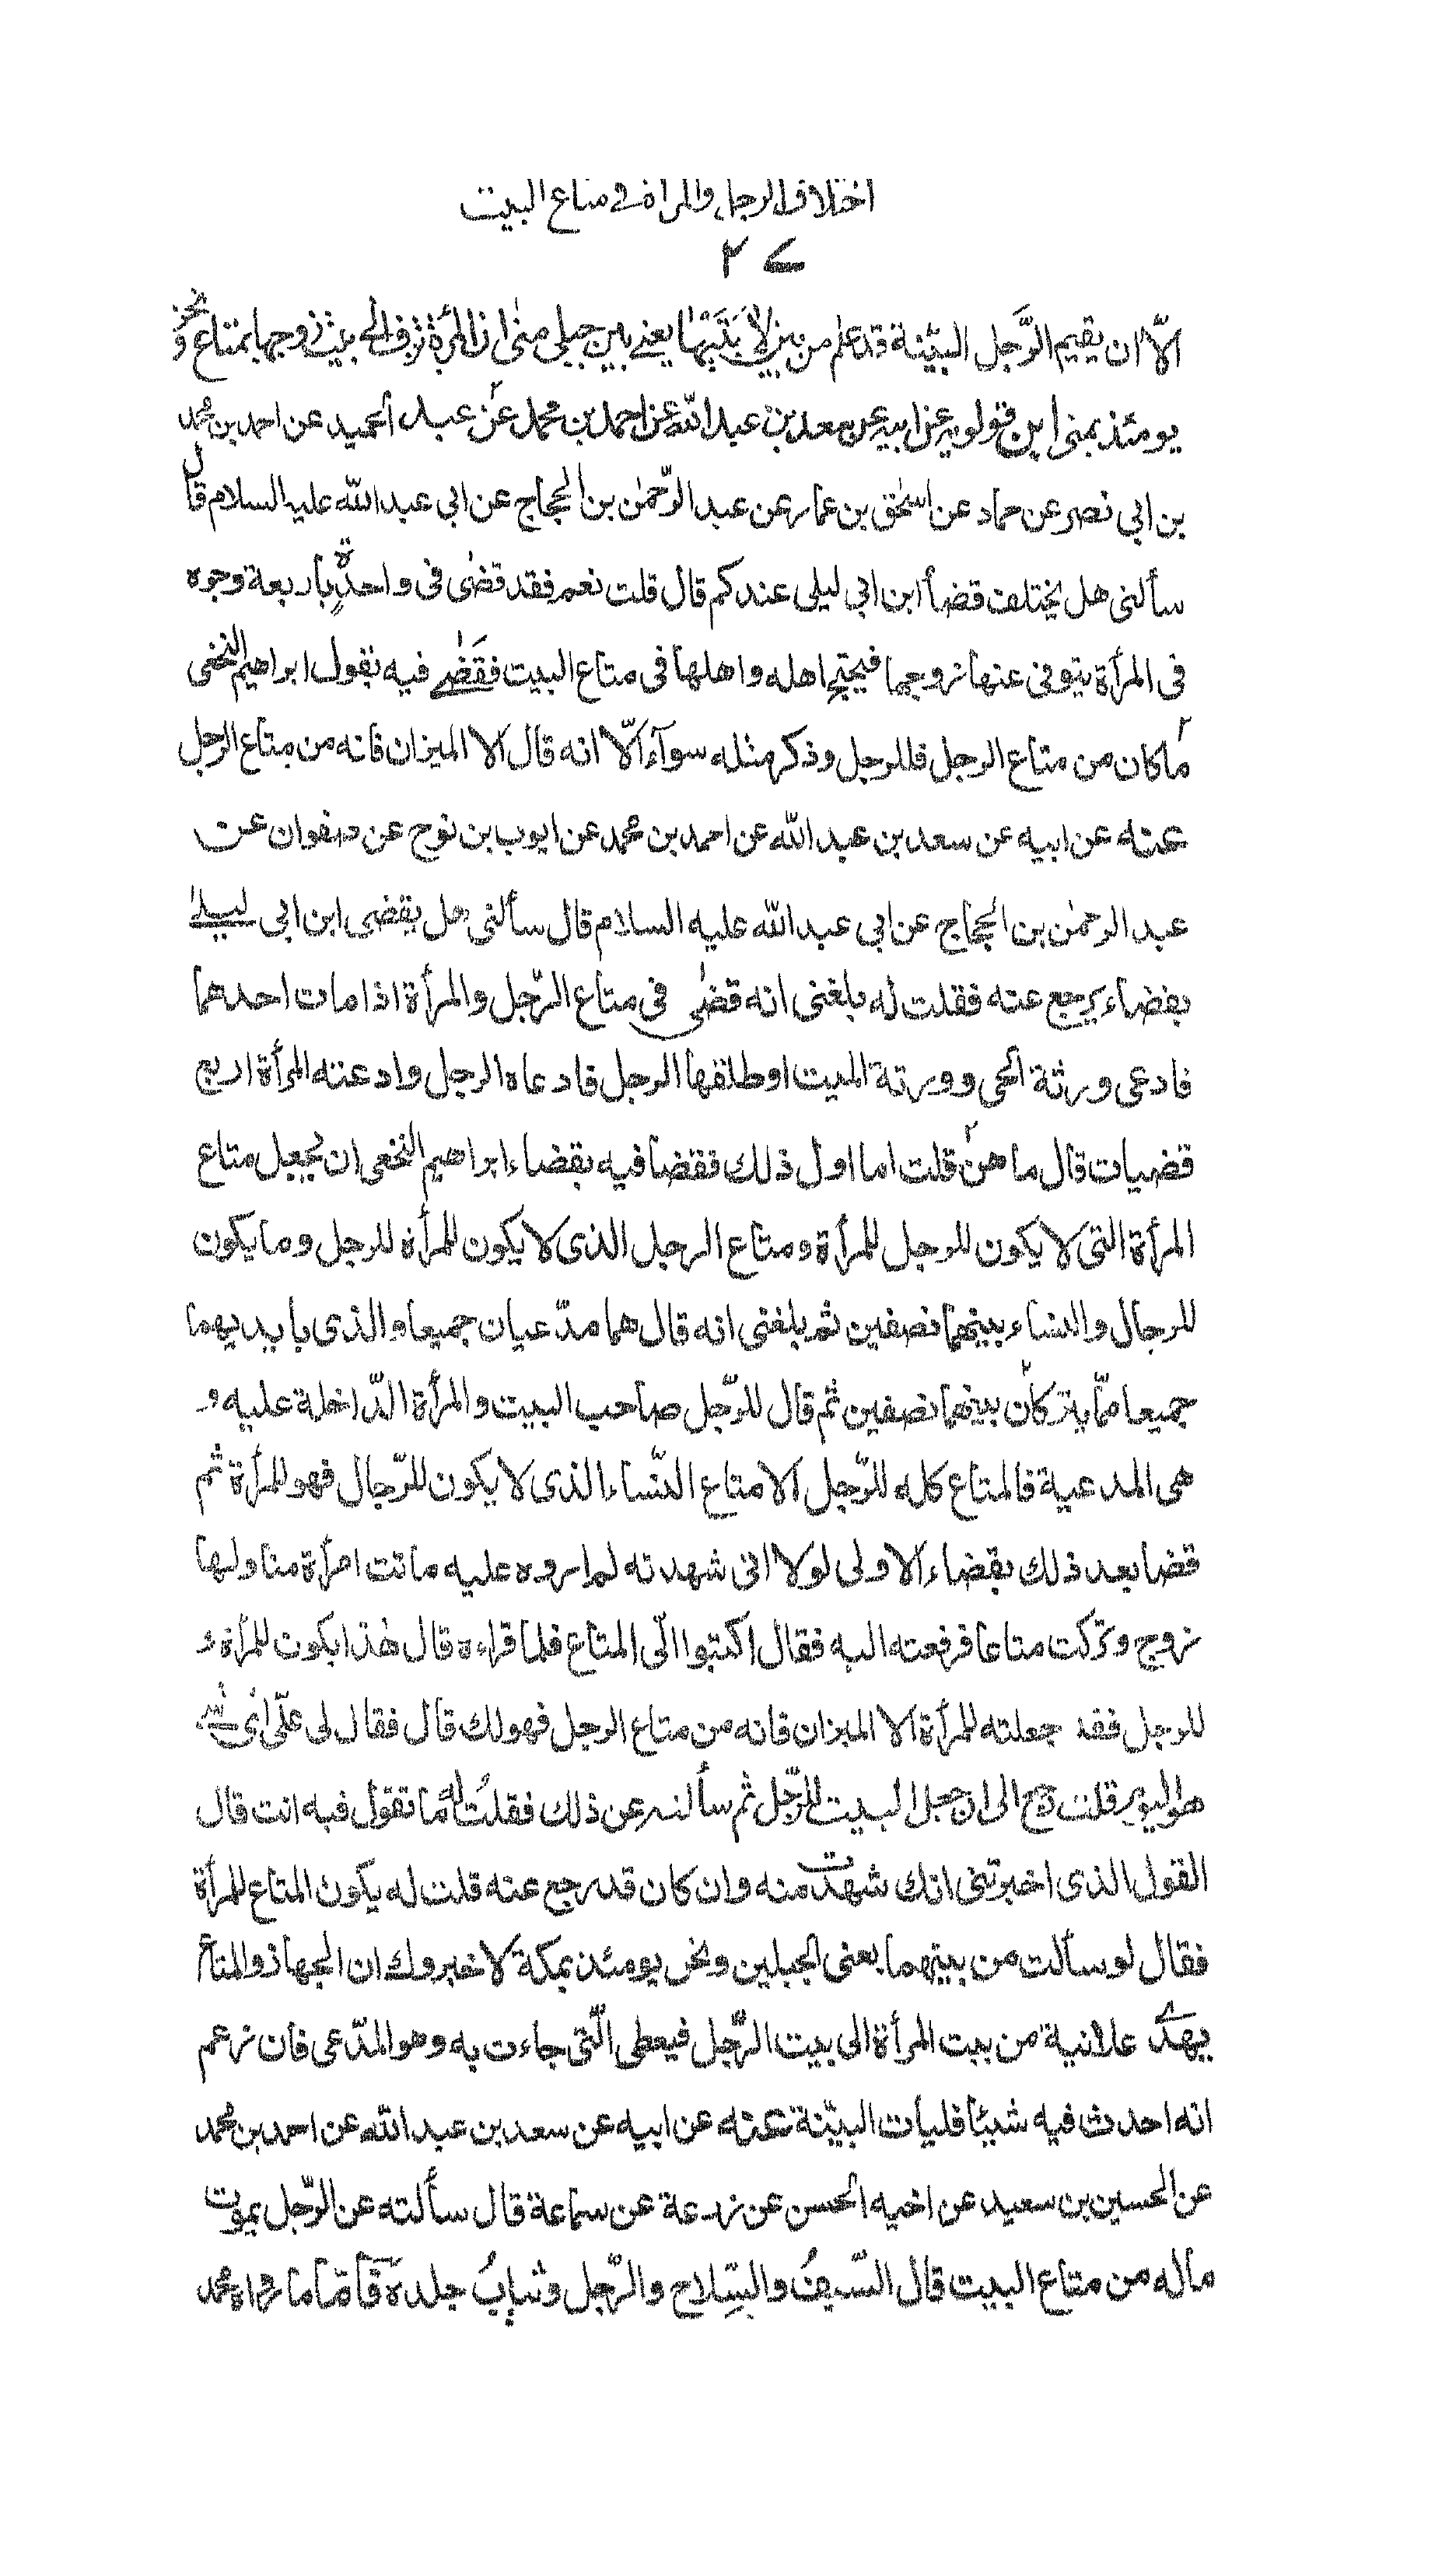 اختلاف الرجل والمرأة في متاع البيت
الّا ان يقيم الرَّجل البيّنة قد علم من بين لابَتَيها يعنى بين جبلى منٰى ان المرأة تزف الى بيت زوجها بمتاع ونحن
يومئذ بمنى ابن قولويه عن ابيه عن سعد بن عبد الله عن احمد بن محمد عن عبد الحميد عن احمد بن محمد
بن ابي نصر عن حماد عن اسحٰق بن عمار عن عبد الرّحمٰن بن الحجاج عن ابي عبد الله عليه السلام قال
سألنى هل يختلف قضأ ابن ابي ليلى عندكم قال قلت نعم فقد قضٰى فى واحدة بأربعة وجوه
فى المرأة يتوفى عنها زوجها فيحتج اهله واهلها فى متاع البيت فقَضٰے فيه بقول ابراهيم النخعى
ما كان من متاع الرجل فللرجل وذكر مثله سوآء الّا انه قال الا الميزان فانه من متاع الرجل
عنه عن ابيه عن سعد بن عبد الله عن احمد بن محمد عن ايوب بن نوح عن صفوان عن
عبد الرحمٰن بن الحجاج عن ابي عبد الله عليه السلام قال سألنى هل يقضى ابن ابي ليلىٰ
بقضاء يرجع عنه فقلت له بلغنى انه قضٰى فى متاع الرّجل والمرأة اذا مات احدهما
فادعى ورثة الحى وورثة الميت او طلقها الرجل فادعاه الرجل وادعته المرأة اربع
قضيات قال ما هن قلت اما اول ذلك فقضا فيه بقضاء ابراهيم النخعى ان يجعل متاع
المرأة التى لا يكون للرجل للمرأة ومتاع الرجل الذى لا يكون للمرأة للرجل وما يكون
للرجال والنساء بينهما نصفين ثم بلغنى انه قال هما مدّعيان جميعا والذى بايديهما
جميعا ممّا يتركان بينهما نصفين ثم قال للرّجل صاحب البيت والمرأة الدّاخلة عليه و
هى المدعية فالمتاع كله للرّجل الا متاع النّساء الذى لا يكون للرّجال فهو للمرأة ثم
قضا بعد ذلك بقضاء لا ولى لولا انى شهدته لم اروه عليه ماتت امرأة منا ولها
زوج وتركت متاعا فرفعته اليه فقال اكتبوا الّى المتاع فلما قراءه قال هٰذا يكون للمرأة و
للرجل فقد جعلته للمرأة الا الميزان فانه من متاع الرجل فهو لك قال فقال لى علٰى اى شىء
هو اليوم قلت رجع الى ان جعل البيت للرّجل ثم سألته عن ذلك فقلتُ له ما تقول فيه انت قال
القول الذى اخبرتنى انك شهدت منه وان كان قد رجع عنه قلت له يكون المتاع للمرأة
فقال لو سألت من بينهما يعنى الجبلين ونحن يومئذ بمكة لاخبروك ان الجهاز والمتاع
يهدے علانية من بيت المرأة الى بيت الرّجل فيعطى الّتى جاءت به وهو المدّعى فان زعم
انه احدث فيه شيئا فليأت البيّنة عنه عن ابيه عن سعد بن عبد الله عن احمد بن محمد
عن الحسين بن سعيد عن اخيه الحسن عن زرعة عن سماعة قال سألته عن الرّجل يموت
ماله من متاع البيت قال السّيفُ والسِّلاح والرّحل وثيابُ جلده فأمّا ما رواه محمد